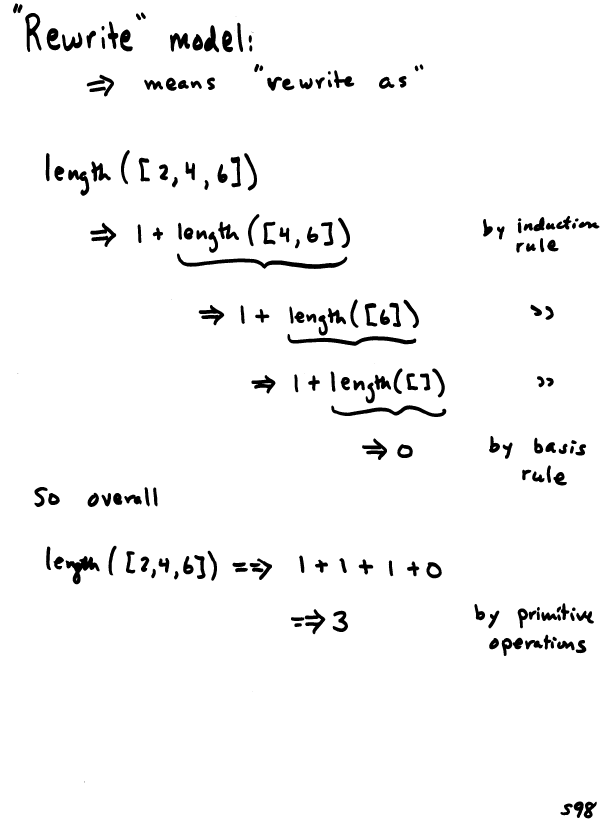 "Rewrite" model:
⇒ means "rewrite as"
length([2,4,6])
⇒ 1 + length([4,6]) by induction
rule
⇒ 1 + length([6]) ››
⇒ 1 + length([]) ››
⇒ 0 by basis
rule
So overall
length([2,4,6]) ==> 1 + 1 + 1 + 0
==> 3 by primitive
operations
s98